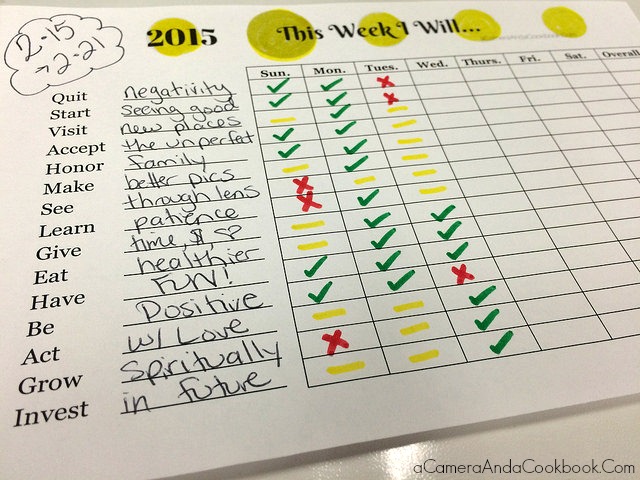 2-15
→ 2-21
2015 This Week I Will...
Sun. Mon. Tues. Wed. Thurs. Fri. Sat. Overall
Quit negativity
Start seeing good
Visit new places
Accept the unperfect
Honor family
Make better pics
See through lens
Learn patience
Give time, $, ♡
Eat healthier
Have FUN!
Be Positive
Act w/ Love
Grow Spiritually
Invest in future
aCameraAndaCookbook.Com